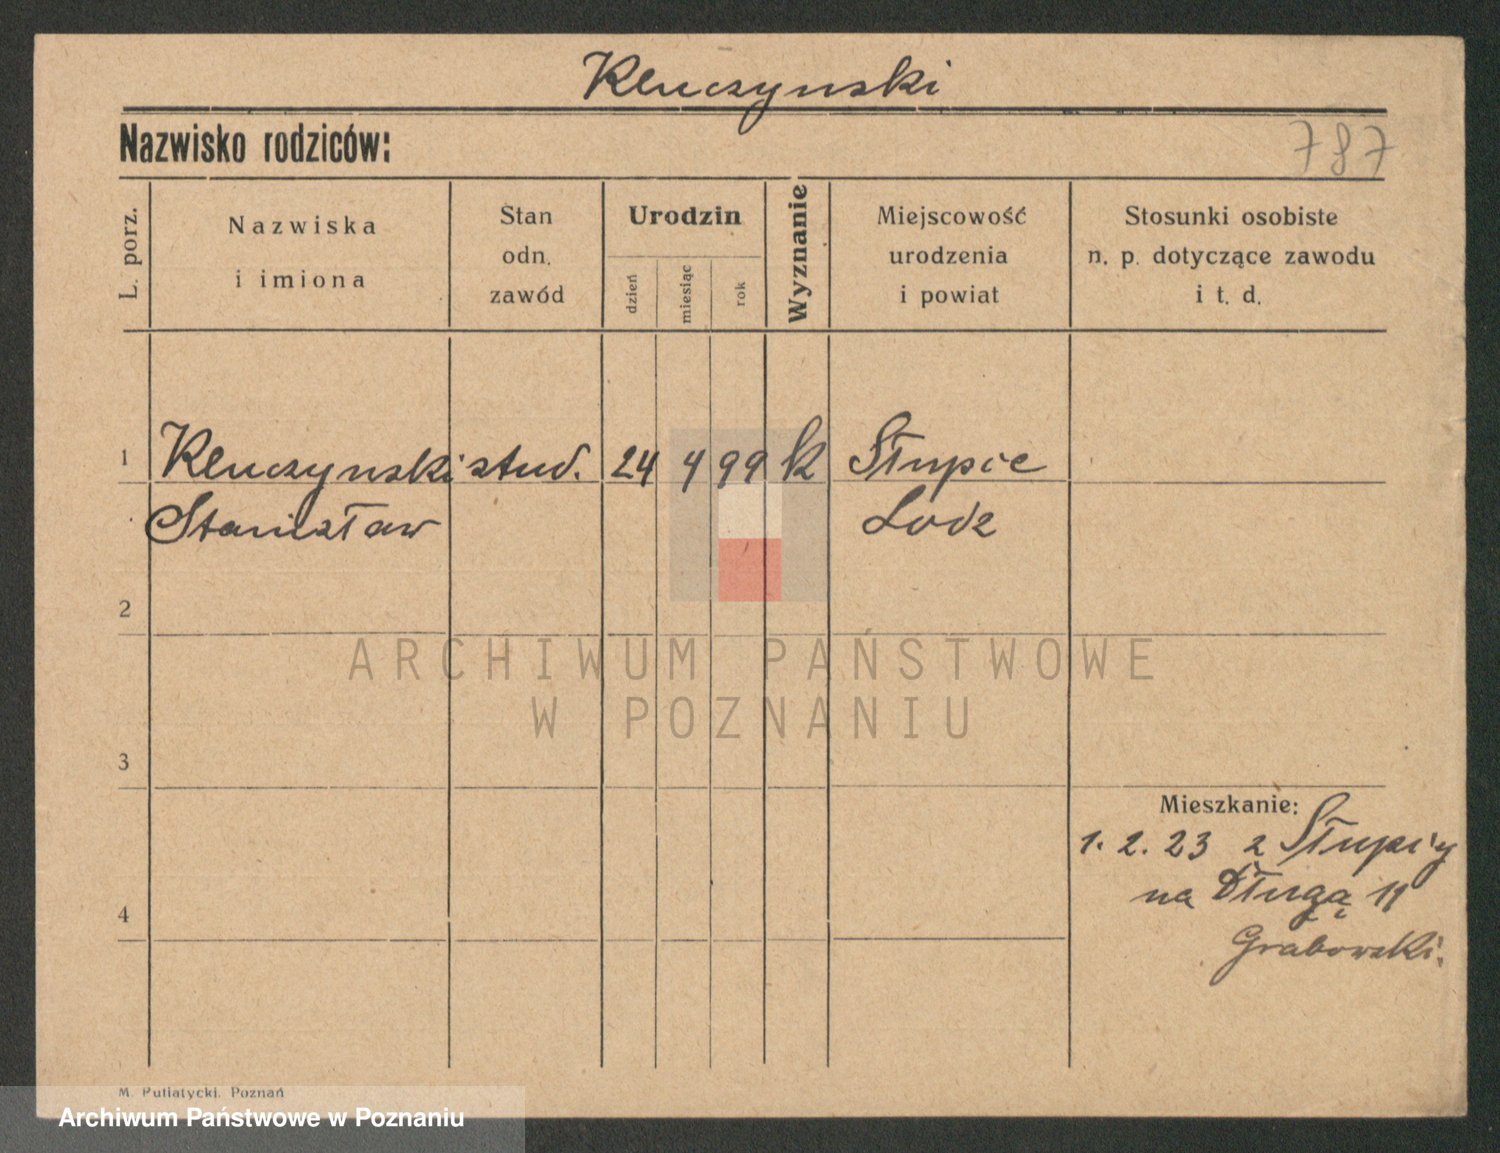 Kluczynski
Nazwisko rodziców:
787
L. porz.
Nazwiska
i imiona
Stan
odn.
zawód
Urodzin
dzień
miesiąc
rok
Wyznanie
Miejscowość
urodzenia
i powiat
Stosunki osobiste
n. p. dotyczące zawodu
i t. d.
1 Kluczynski stud. 24 4 99 k Słupie
Stanisław Lodz
2
ARCHIWUM PAŃSTWOWE
W POZNANIU
3
Mieszkanie:
1. 2. 23 z Słupi'y
na Długą 11
4
Grabowski.
M. Putiatycki. Poznań
Archiwum Państwowe w Poznaniu